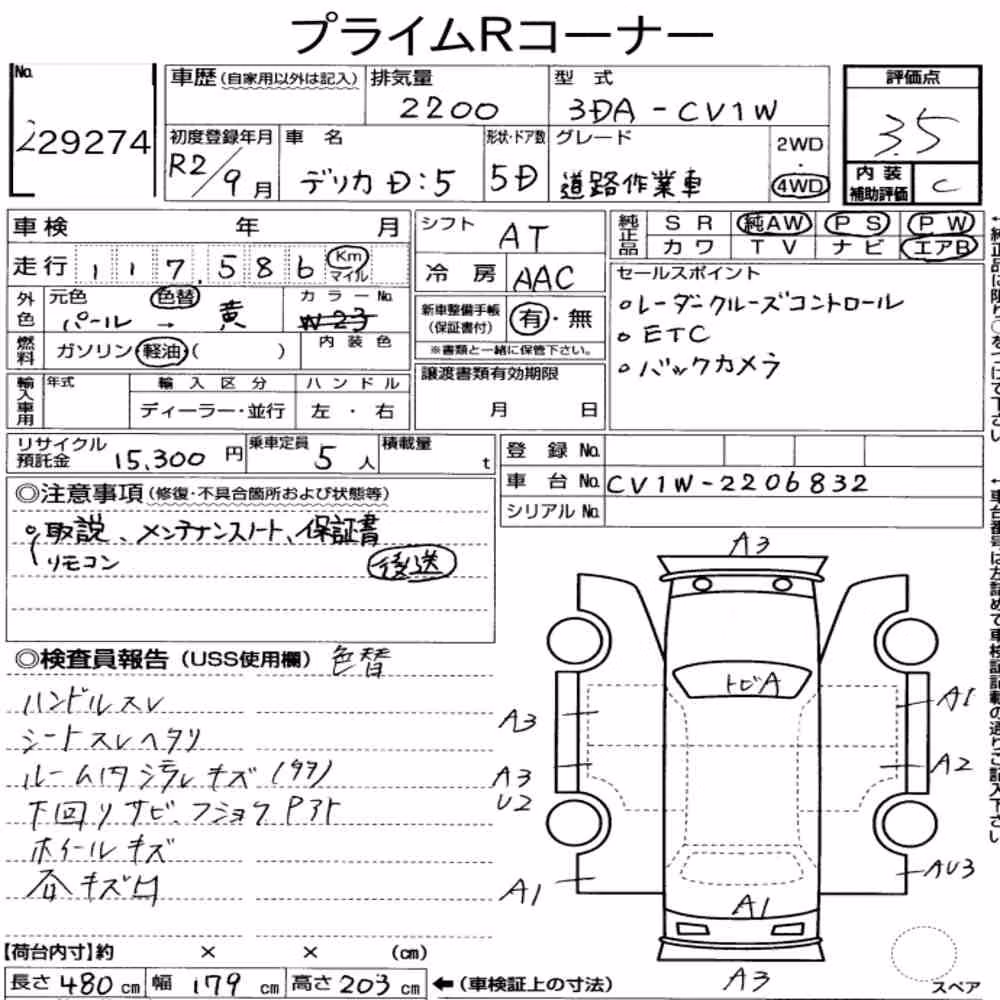 プライムRコーナー
No.
29274
車歴 (自家用以外は記入)
排気量
2200
型式
3DA-CV1W
評価点
3.5
初度登録年月
R2/9月
車名
デリカD:5
形状・ドア数
5D
グレード
道路作業車
2WD
・
4WD
内装
補助評価
C
車検 年 月
走行 117,586 Km マイル
シフト
AT
冷房 AAC
純正品
SR 純AW PS PW
カワ TV ナビ エアB
セールスポイント
○レーダークルーズコントロール
○ETC
○バックカメラ
外色
元色 色替
パール → 黄
カラーNo.
W23
新車整備手帳
(保証書付)
有・無
※書類と一緒に保管下さい。
燃料
ガソリン・軽油・( )
内装色
譲渡書類有効期限
月 日
輸入車用
年式
輸入区分
ハンドル
ディーラー・並行
左・右
リサイクル
預託金 15,300円
乗車定員 5人
積載量 t
登録No.
車台No. CV1W-2206832
シリアルNo.
◎注意事項(修復・不具合箇所および状態等)
○取説、メンテナンスノート、保証書
リモコン 後送
◎検査員報告(USS使用欄) 色替
ハンドルスレ
シートスレヘタリ
ルーム内汚レキズ
下回りサビ
ホイールキズ
A3
トビA
A3
A1
A3
U2
A2
A1
A1
AU3
A3
スペア
【荷台内寸】約 × × (cm)
長さ480cm 幅179cm 高さ203cm ←(車検証上の寸法)